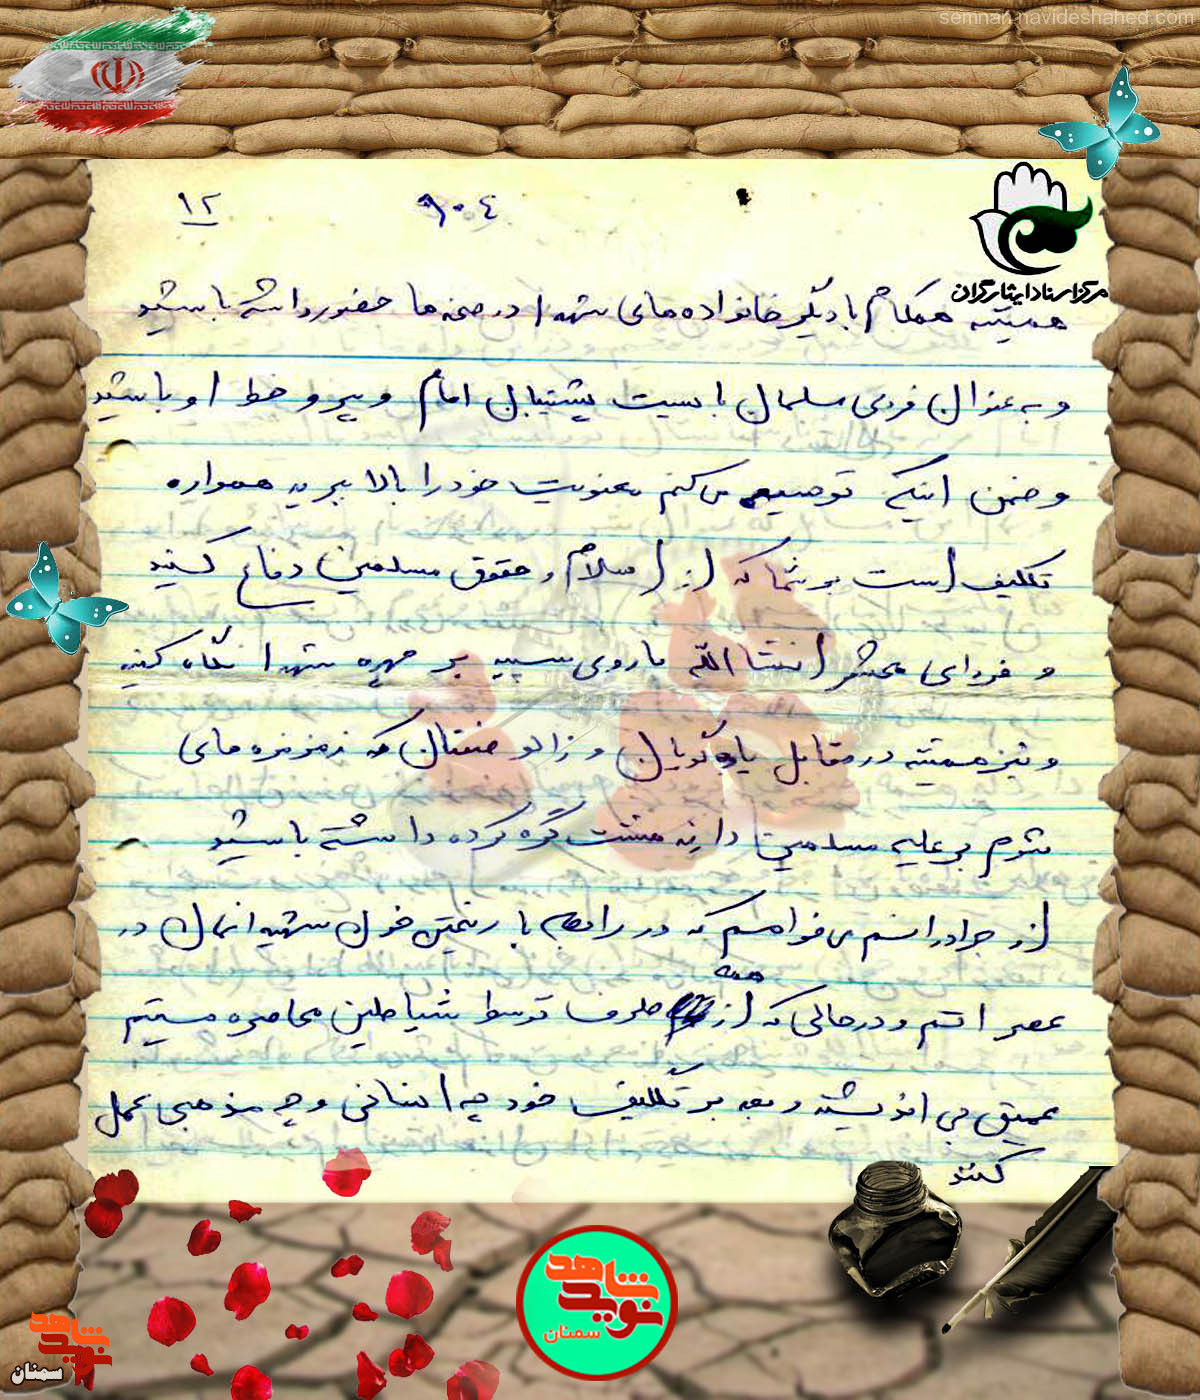 semnan.navideshahed.com
۱۲
۹۰۴
مرکز اسناد ایثارگران
همیشه همگام با دیگر خانواده های شهدا در صحنه ها حضور داشته باشید
و به عنوان فردی مسلمان بایست پشتیبان امام و پیرو خط او باشید
و ضمن اینکه توصیه می کنم معنویت خود را بالا ببرید همواره
تکلیف است بر شما که از اسلام و حقوق مسلمین دفاع کنید
و فردای محشر انشااللّه با روی سپید بر چهره شهدا نگاه کنید
و نیز همیشه در مقابل یاوه گویان و زالو صفتان که زمزمه های
شوم بر علیه مسلمین دارند مشت گره کرده داشته باشید
از برادرانم می خواهم که در رابطه با ریختن خون شهید انسان در
عصر اتم و در حالی که از همه طرف توسط شیاطین محاصره هستیم
عمیق بی اندیشند و بعد بر تکلیف خود چه انسانی و چه مذهبی عمل
کنند
نوید شاهد
سمنان
نوید شاهد
سمنان